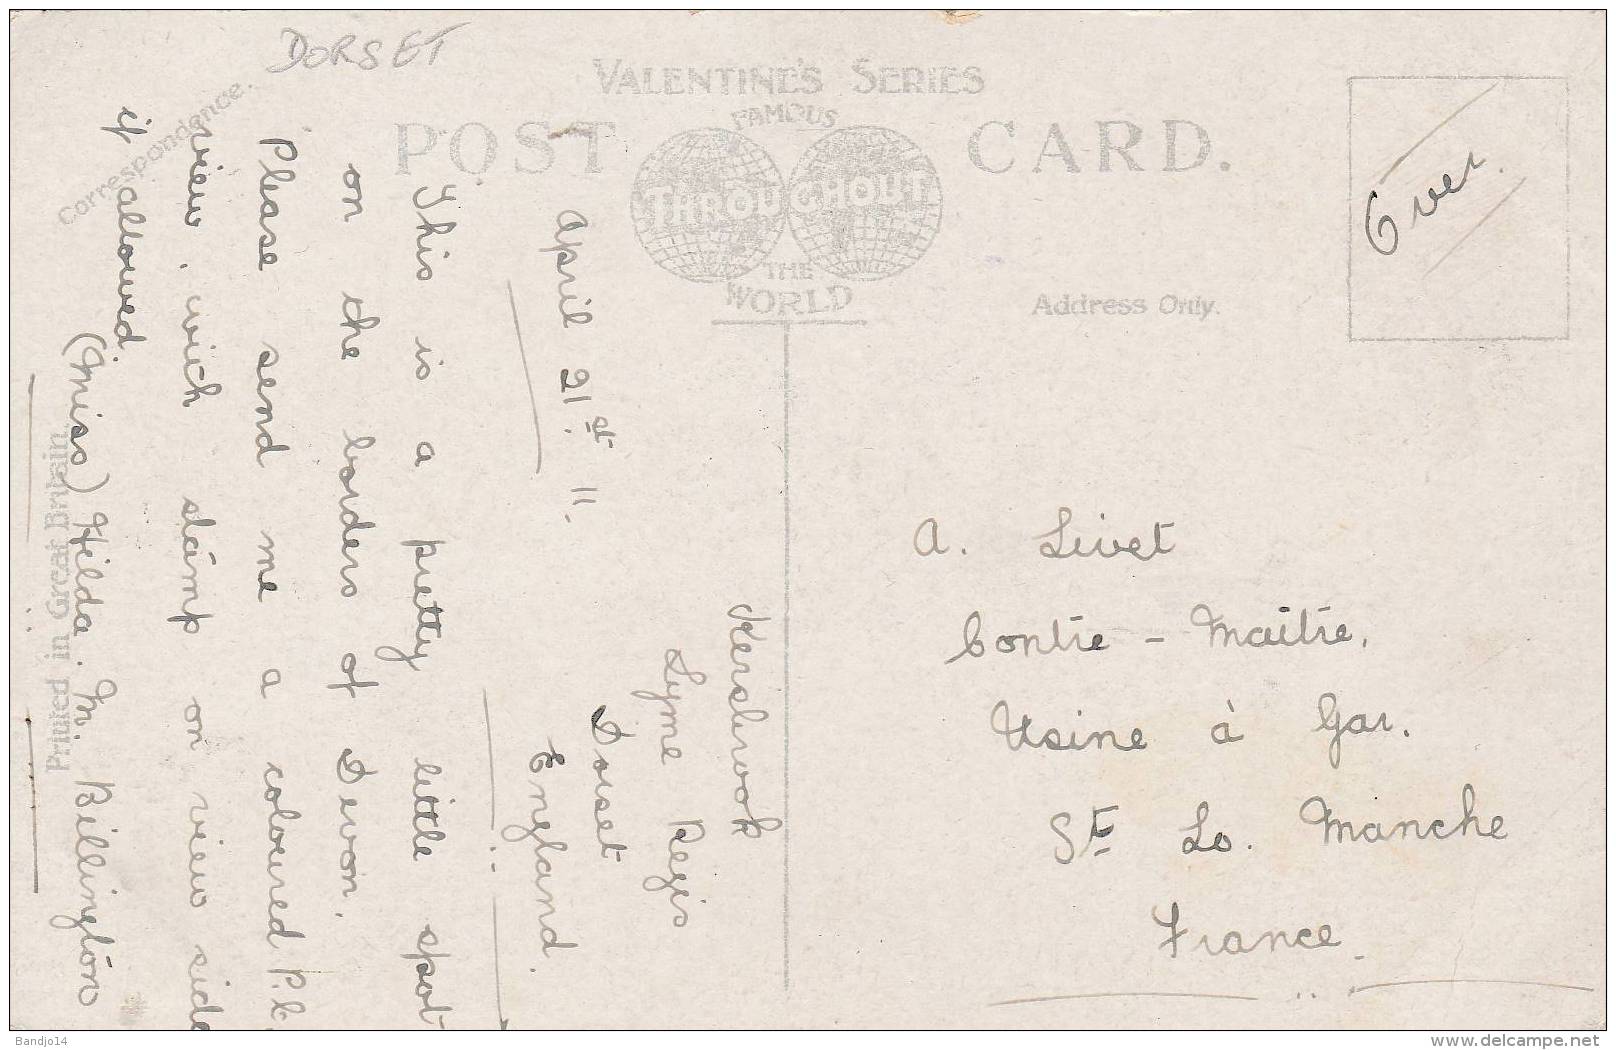 DORSET
VALENTINE'S SERIES
FAMOUS
THROUGHOUT
THE
WORLD
POST CARD.
Correspondence.
Address Only.
Over.
Printed in Great Britain.
Kersbrook
Lyme Regis
Dorset
England.
April 21st. 11.
This is a pretty little spot
on the borders of Devon.
Please send me a coloured P.C.
view, with stamp on view side
if allowed.
(Miss) Hilda. M. Billington
A. Livet
Contre - Maître,
Usine à Gar.
St Lo. Manche
France.
Bandjo14
www.delcampe.net